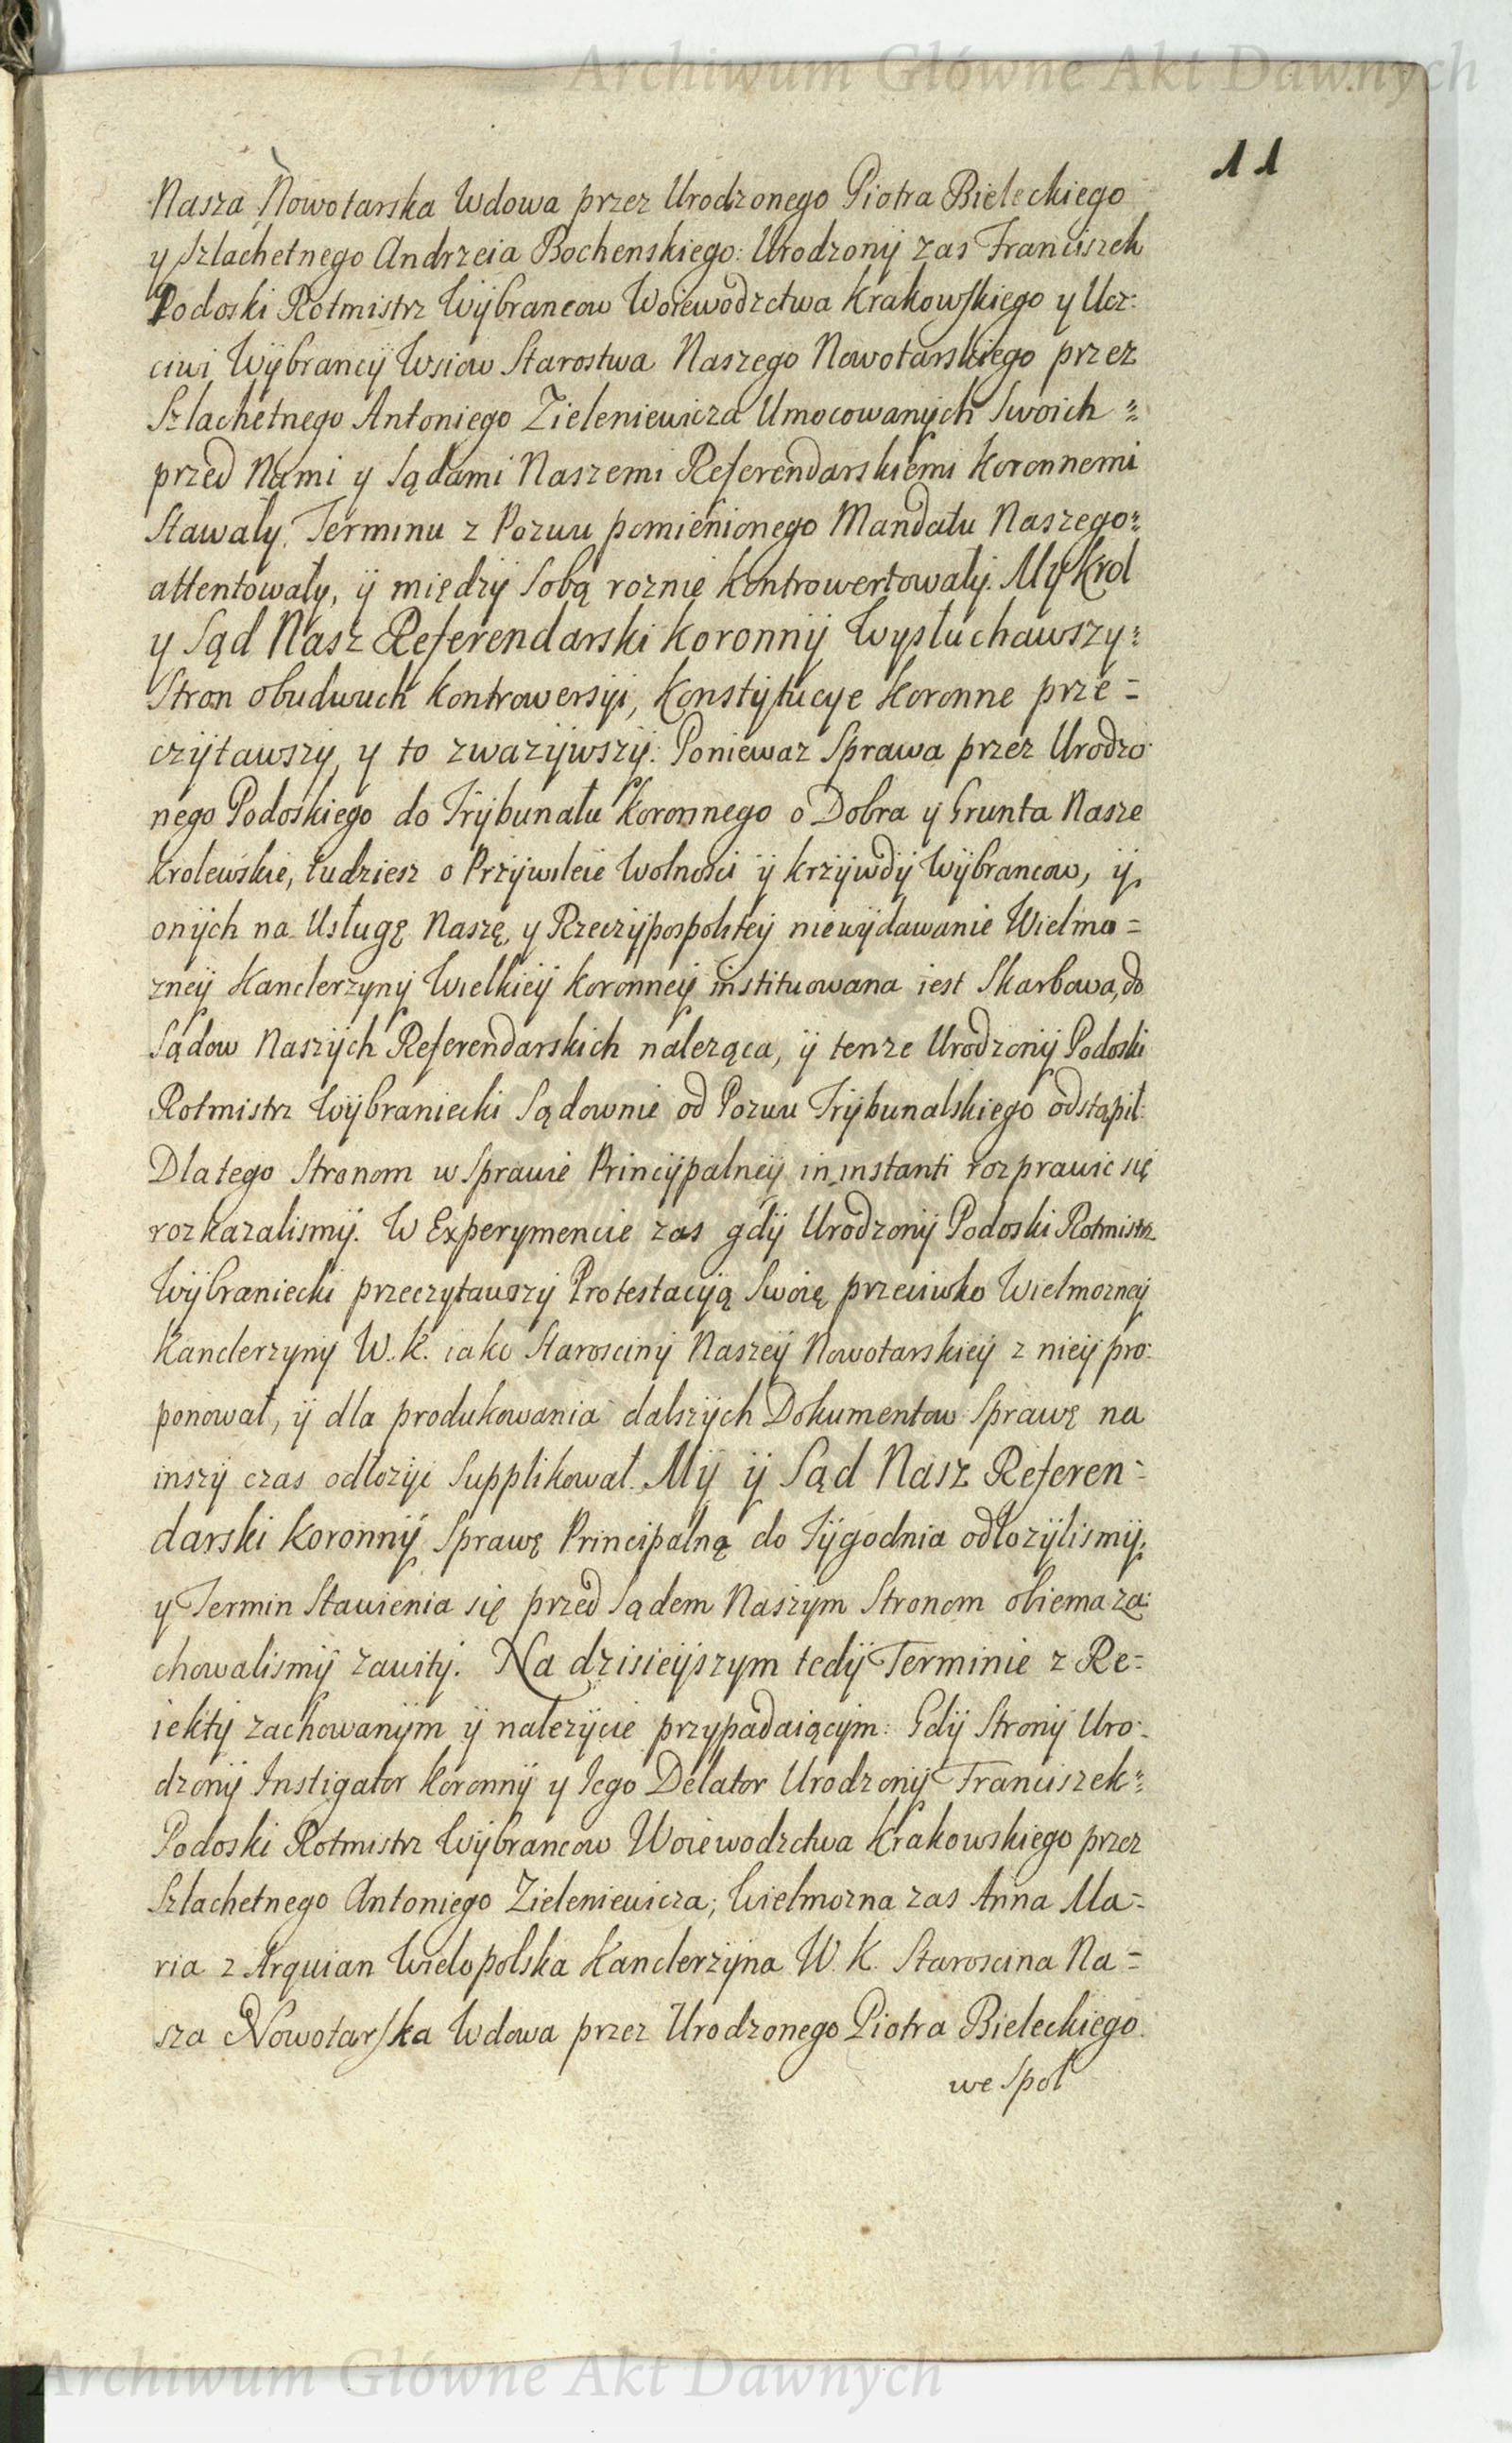 Archiwum Główne Akt Dawnych
11
Nasza Nowotarska Wdowa przez Urodzonego Piotra Bieleckiego
y Szlachetnego Andrzeia Bochenskiego: Urodzonÿ zas Franciszek
Podoski Rotmistrz Wÿbrancow Woiewodzctwa Krakowskiego y Ucz:
ciwi Wÿbrancÿ Wsiow Starostwa Naszego Nowotarskiego przez
Szlachetnego Antoniego Zieleniewicza Umocowanÿch Swoich =
przed Nami y Sądami Naszemi Referendarskiemi Koronnemi
Stawały, Terminu z Pozwu pomienionego Mandatu Naszego=
attentowały, ÿ międzÿ Sobą roznie kontrowertowałÿ. Mÿ Krol
y Sąd Nasz Referendarski Koronnÿ Wysłuchawszy=
Stron obudwuch kontrowersÿi, Konstÿtucye Koronne prze=
czÿtawszÿ, y to zwazÿwszÿ: Poniewaz Sprawa przez Urodzo:
nego Podoskiego do Trÿbunału Koronnego o Dobra y Grunta Nasze
Krolewskie, tudziesz o Przÿwileie Wolnosci ÿ krzÿwdÿ Wÿbrancow, ÿ
onÿch na Usługę Naszę, y Rzeczÿpospolitey niewÿdawanie Wielmo=
zneÿ Kanclerzynÿ Wielkieÿ Koronneÿ instituowana iest Skarbowa, do
Sądow Naszÿch Referendarskich nalezqca, ÿ tenze Urodzonÿ Podoski
Rotmistrz Wÿbraniecki Sądownie od Pozwu Trÿbunalskiego odstąpił:
Dlatego Stronom w Sprawie Princÿpalneÿ in instanti rozprawic się
rozkazalismÿ. W Experymencie zas gdÿ Urodzonÿ Podoski Rotmistrz
Wÿbraniecki przeczytawszÿ Protestacyą Swoię przeciwko Wielmozney
Kanclerzynÿ W. K. iako Starościnÿ Naszeÿ Nowotarskieÿ z nieÿ pro:
ponował, ÿ dla produkowania dalszÿch Dokumentow Sprawę na
inszÿ czas odłozÿc Supplikował. Mÿ ÿ Sąd Nasz Referen=
darski Koronnÿ Sprawę Principalną do Tÿgodnia odłozÿlismÿ,
y Termin Stawienia się przed Sądem Naszym Stronom obiema za:
chowalismÿ zawitÿ. Na dzisieÿszym tedÿ Terminie z Re=
iektÿ zachowanÿm ÿ nalezÿcie przypadaiącÿm: Gdÿ Stronÿ Uro=
dzonÿ Instigator Koronnÿ y Iego Delator Urodzonÿ Franciszek=
Podoski Rotmistrz Wÿbrancow Woiewodzctwa Krakowskiego przez
Szlachetnego Antoniego Zieleniewicza; Wielmozna zas Anna Ma=
ria z Arquian Wielopolska Kanclerzÿna W. K. Staroscina Na=
sza Nowotarska Wdowa przez Urodzonego Piotra Bieleckiego.
we Społ
Archiwum Główne Akt Dawnych